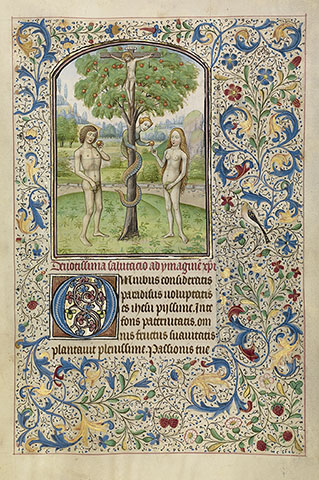 Deuotissima salutacio ad ymagine xpi
Omnibus consideratis
paradisus voluptatis
es ihesu pijssime. Inte
fons paternitatis, om
nis fructus suauitatis
plantatur plenissime. Passionis tue